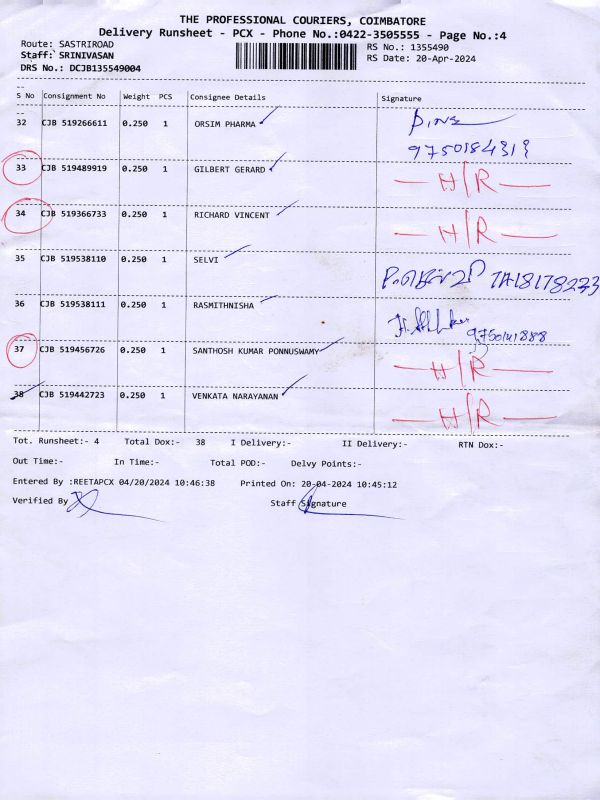 THE PROFESSIONAL COURIERS, COIMBATORE
Delivery Runsheet - PCX - Phone No.:0422-3505555 - Page No.:4
Route: SASTRIROAD RS No.: 1355490
Staff: SRINIVASAN RS Date: 20-Apr-2024
DRS No.: DCJB135549004
S No Consignment No Weight PCS Consignee Details Signature
32 CJB 519266611 0.250 1 ORSIM PHARMA
33 CJB 519489919 0.250 1 GILBERT GERARD H/R
34 CJB 519366733 0.250 1 RICHARD VINCENT H/R
35 CJB 519538110 0.250 1 SELVI
36 CJB 519538111 0.250 1 RASMITHNISHA
9750141888
37 CJB 519456726 0.250 1 SANTHOSH KUMAR PONNUSWAMY H/R
38 CJB 519442723 0.250 1 VENKATA NARAYANAN H/R
Tot. Runsheet:- 4 Total Dox:- 38 I Delivery:- II Delivery:- RTN Dox:-
Out Time:- In Time:- Total POD:- Delvy Points:-
Entered By :REETAPCX 04/20/2024 10:46:38 Printed On: 20-04-2024 10:45:12
Verified By Staff Signature